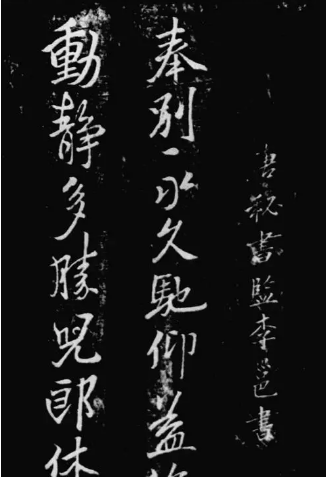 唐秘書監李邕書
奉別永久馳仰益
動靜多勝兒郎休